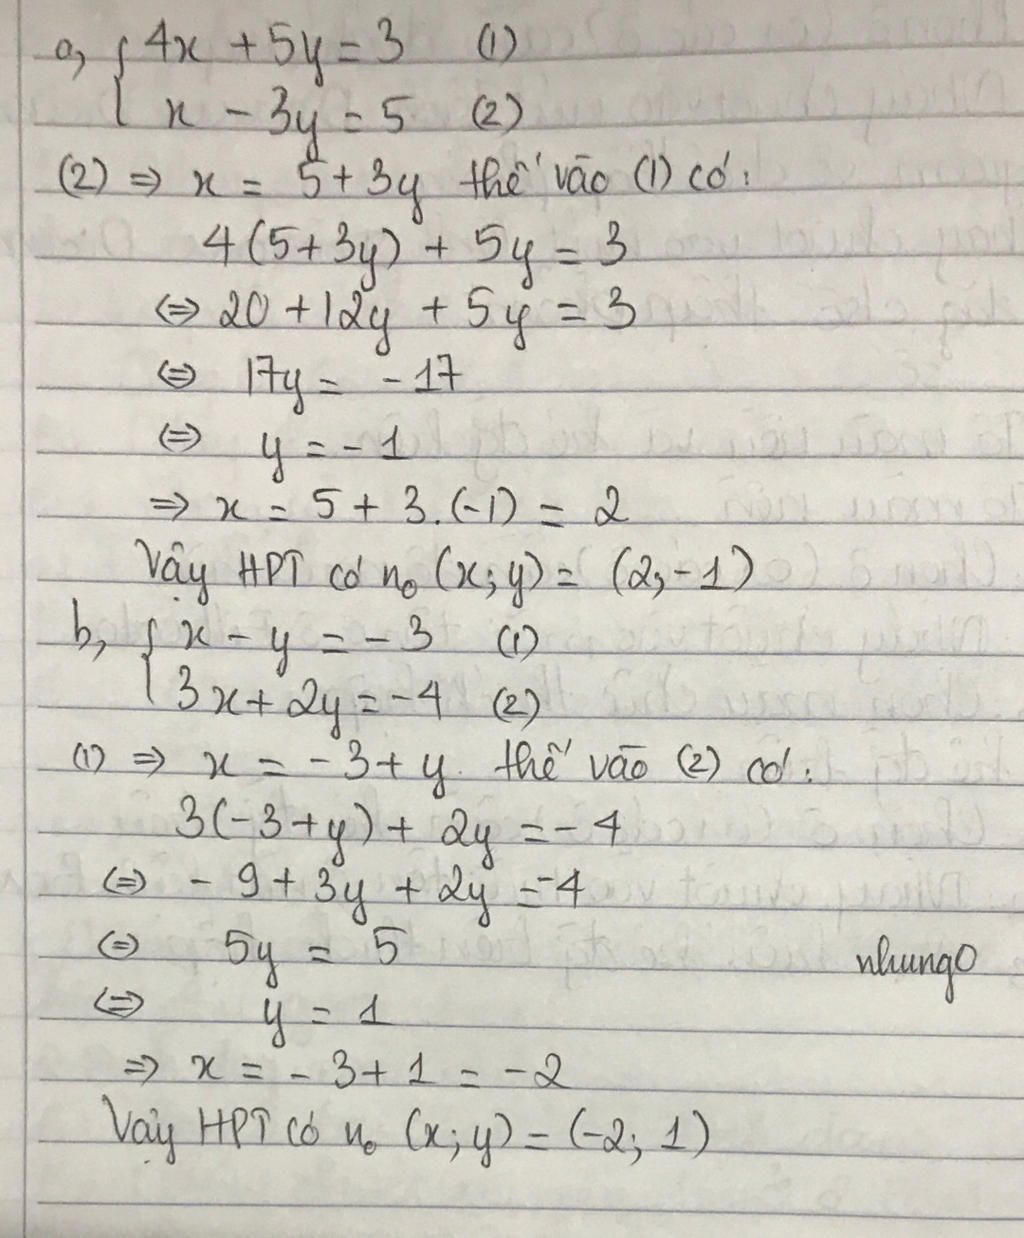 a, { 4x + 5y = 3 (1)
x - 3y = 5 (2)
(2) ⇒ x = 5 + 3y thế vào (1) có:
4(5+3y) + 5y = 3
⇔ 20 + 12y + 5y = 3
⇔ 17y = -17
⇔ y = -1
⇒ x = 5 + 3.(-1) = 2
Vậy HPT có no (x; y) = (2; -1)
b, { x - y = -3 (1)
3x + 2y = -4 (2)
(1) ⇒ x = -3 + y thế vào (2) có:
3(-3+y) + 2y = -4
⇔ -9 + 3y + 2y = -4
⇔ 5y = 5
nhung0
⇔ y = 1
⇒ x = -3 + 1 = -2
Vậy HPT có no (x; y) = (-2; 1)